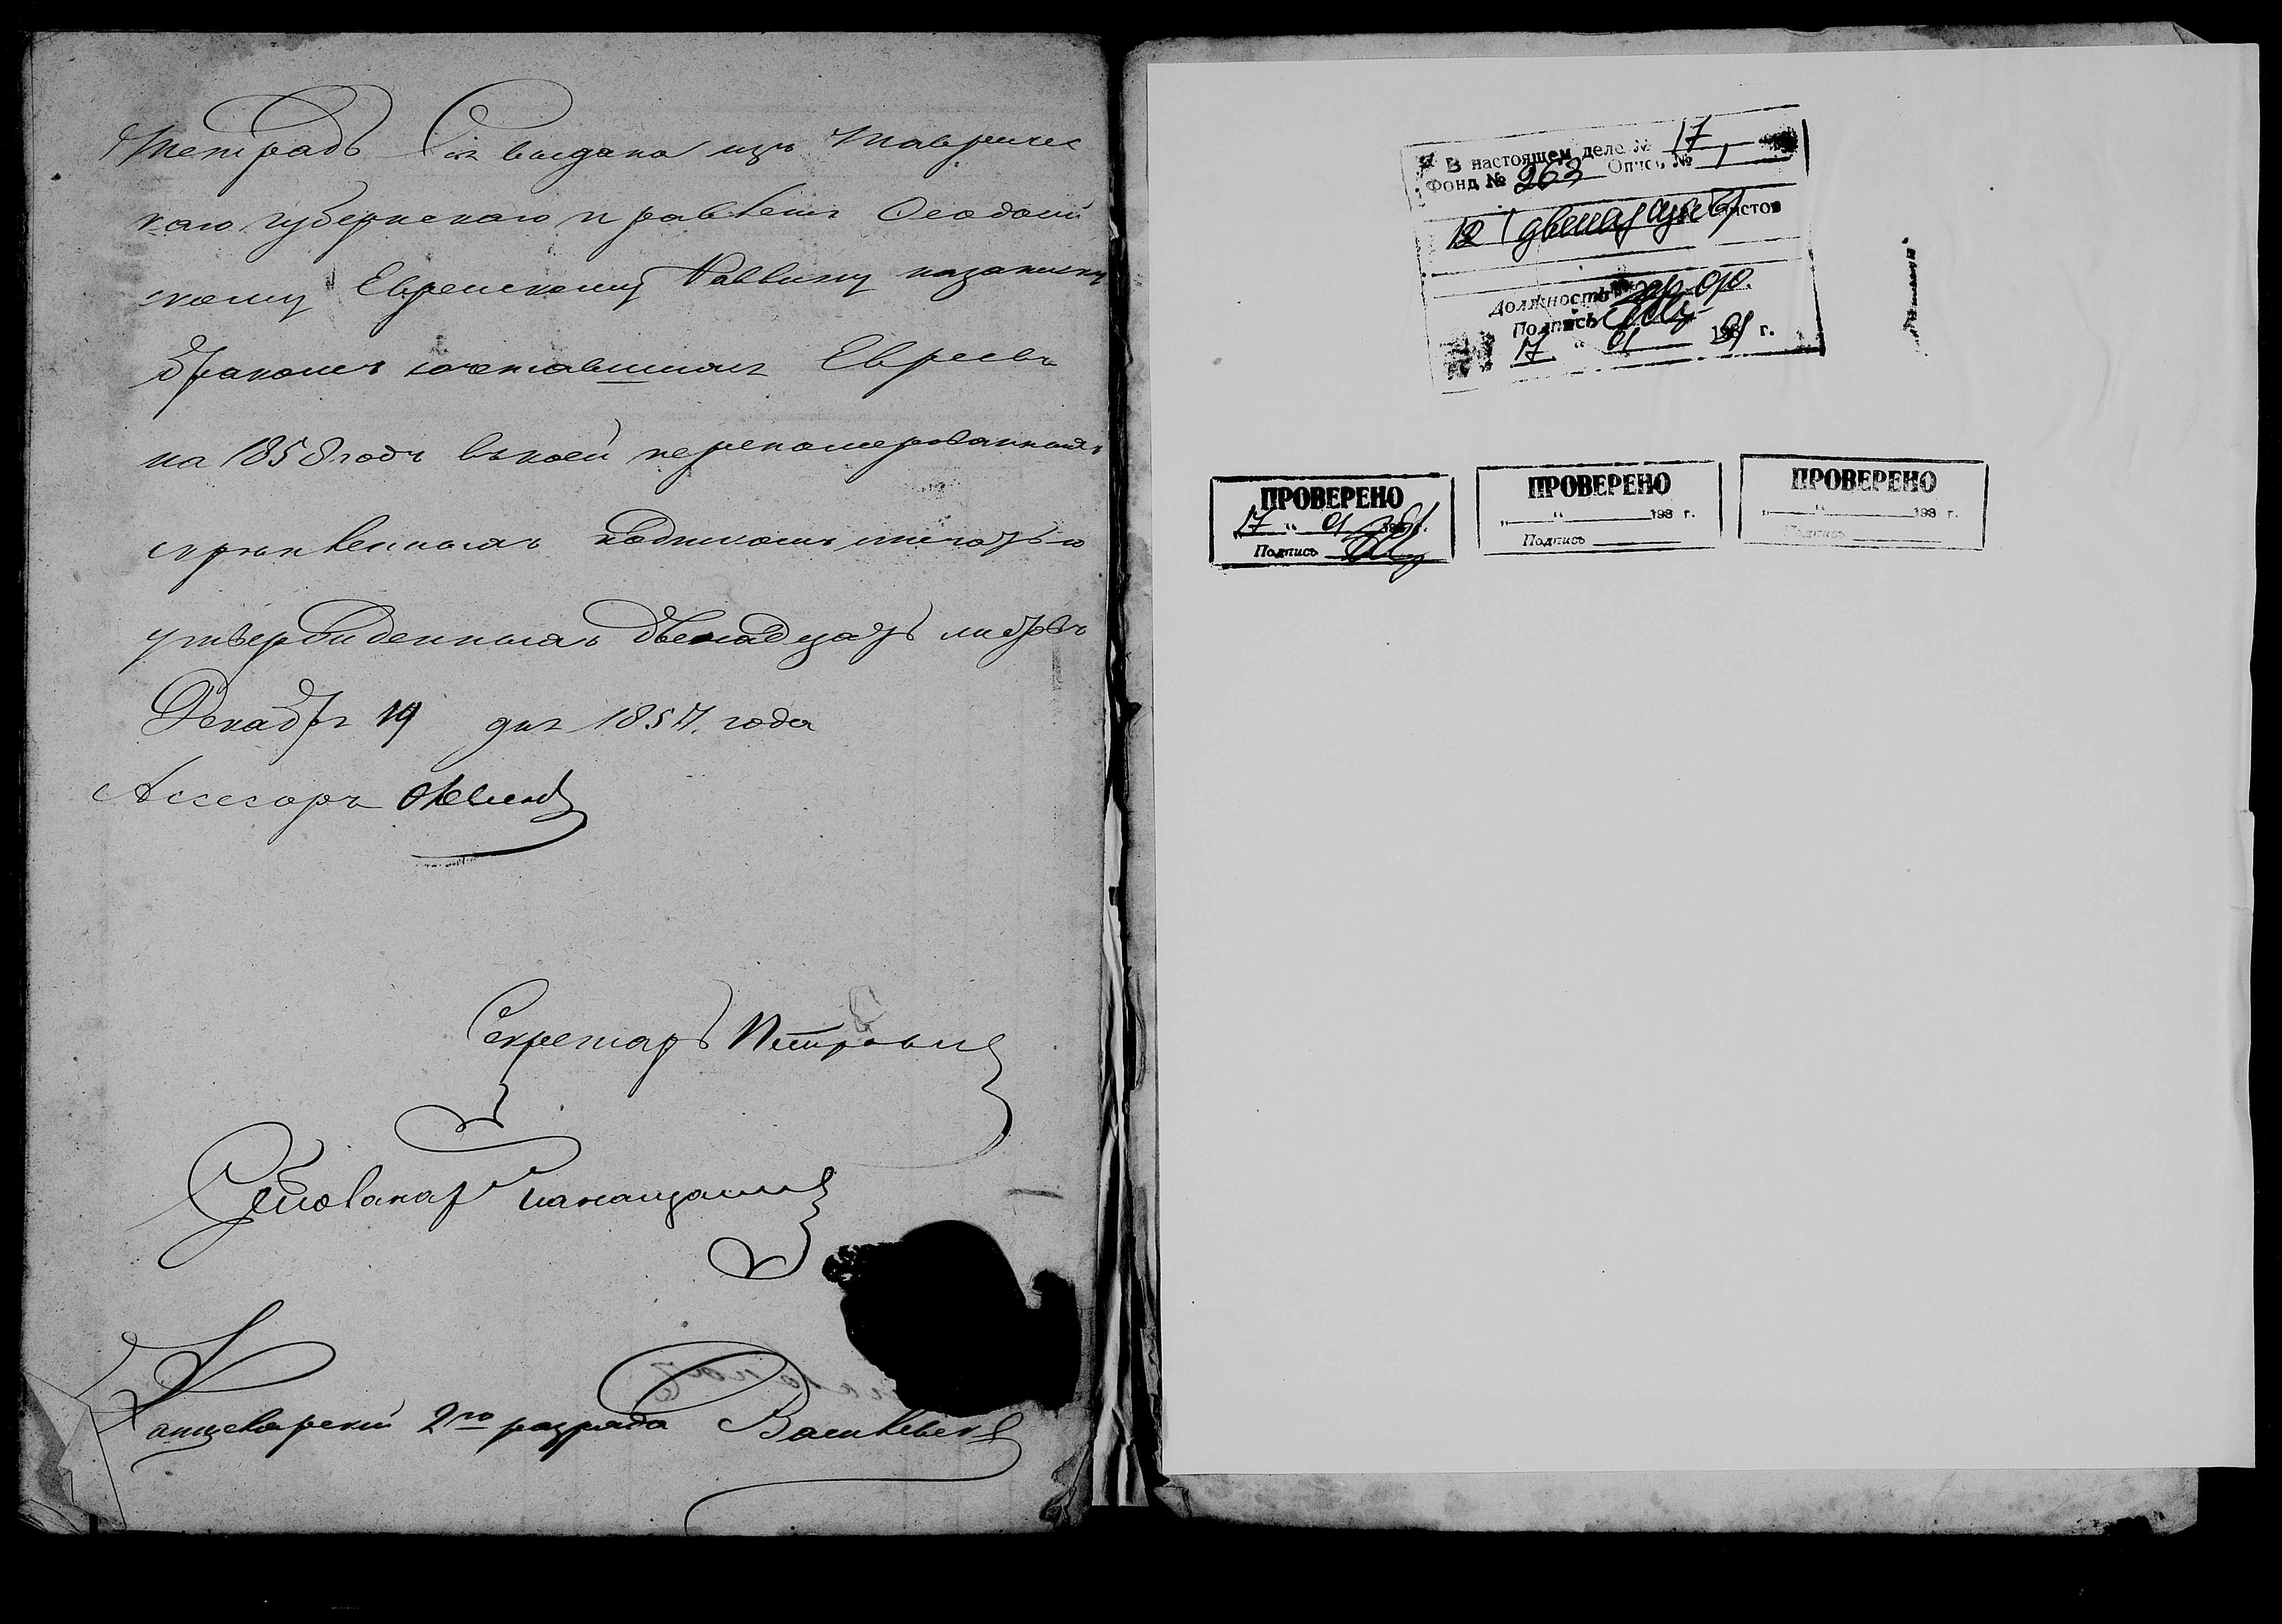 Тетрадь Сія выдана изъ Тавричес
каго губернскаго правленія Ѳеодосій
скому Еврейскому Раввину на записку
бракомъ сочетавшихся Евреевъ
на 1858 годъ въ коей перенумерованныхъ
скрѣпленныхъ и печатью
утвержденныхъ двенадцать листовъ
Декабря 19 дня 1857. года
Асесоръ
Секретарь
Канцелярскій 2го разряда
В настоящем деле № 17
Фонд № 263 Опись № 1
12 (двенадцать) листов
Должность
Подпись
17 " 01 1981 г.
ПРОВЕРЕНО
17 " 01 1981 г.
Подпись
ПРОВЕРЕНО
" " 198 г.
Подпись
ПРОВЕРЕНО
" " 198 г.
Подпись